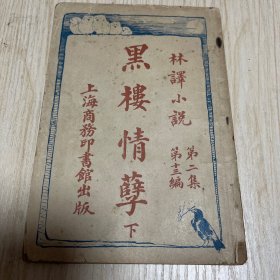 林譯小說
第二集
第十三編
黑樓情孽
下
上海商務印書館出版